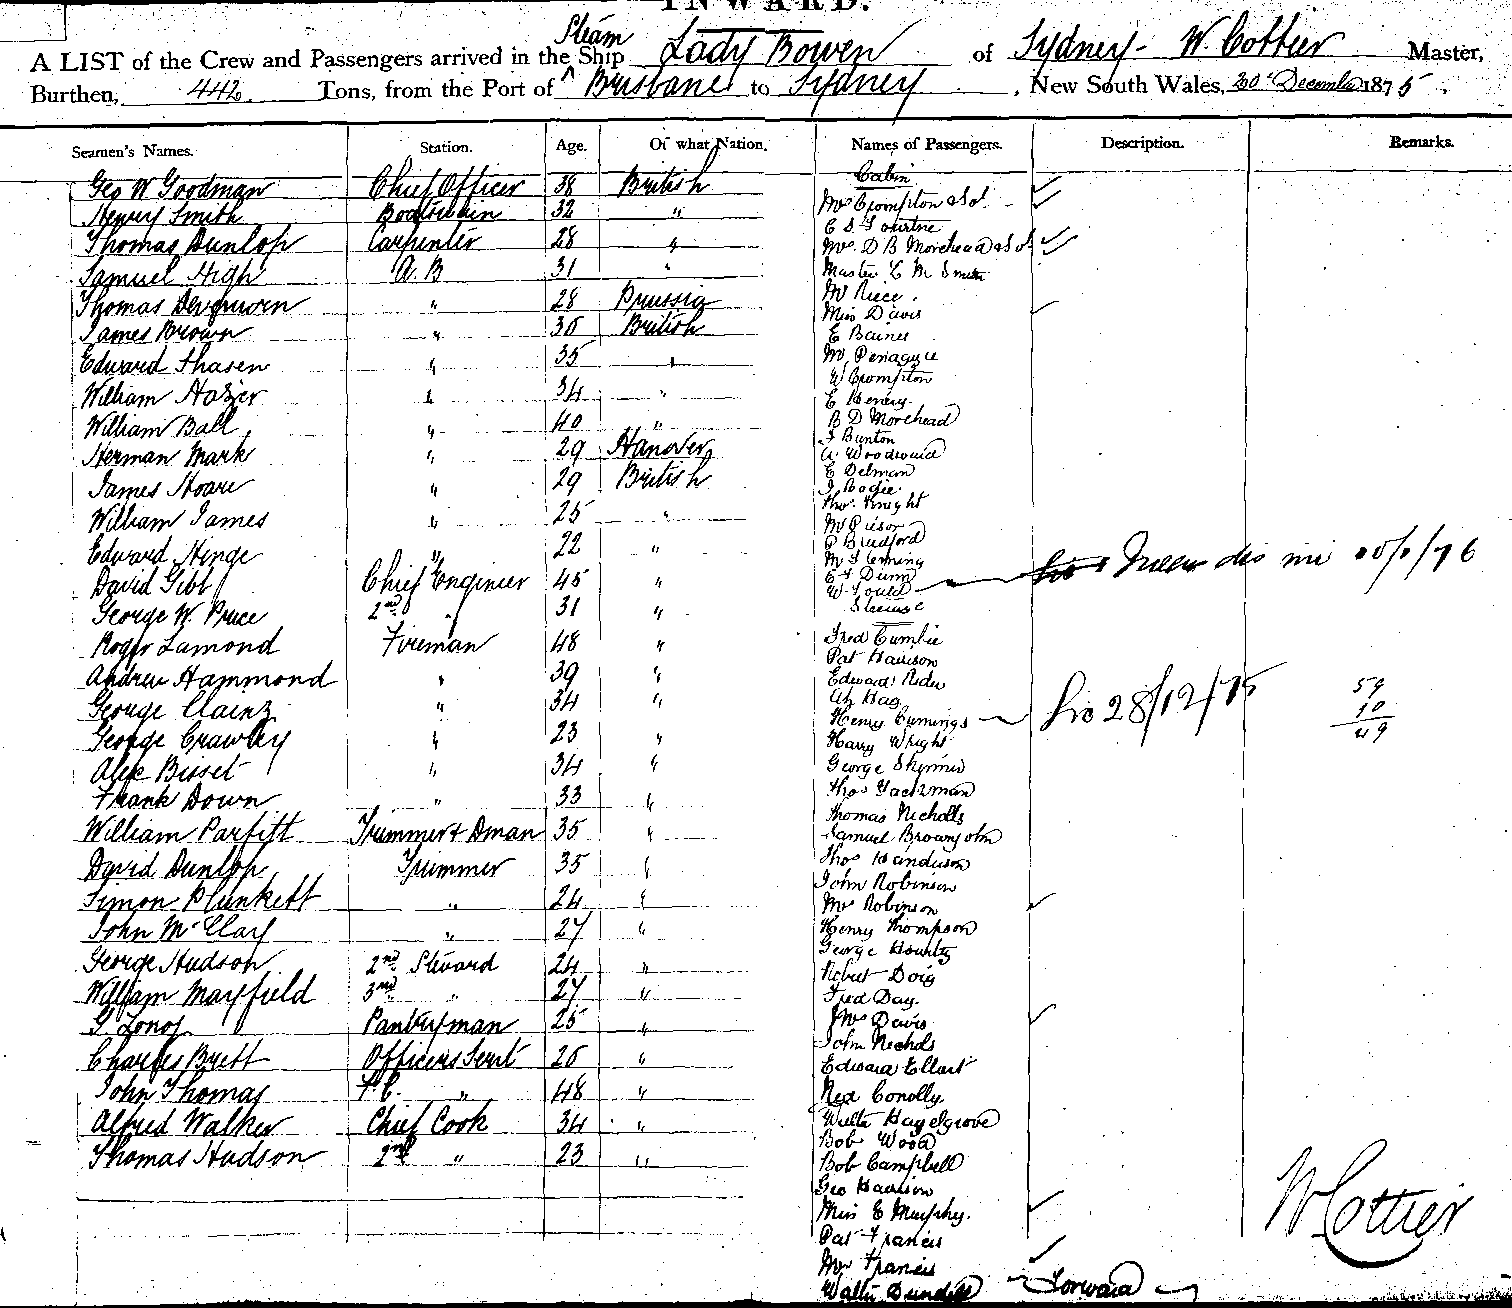 INWARD.
A LIST of the Crew and Passengers arrived in the Steam Ship Lady Bowen of Sydney - W. Cottier Master,
Burthen, 442 Tons, from the Port of Brisbane to Sydney, New South Wales, 20 December 1875.
Seamen's Names. Station. Age. Of what Nation. Names of Passengers. Description. Remarks.
Geo W Goodman Chief Officer 38 British
Henry Smith Boatswain 32 "
Thomas Dunlop Carpenter 28 "
Samuel High A.B 31 "
Thomas " 28 Prussia
James Brown " 30 British
Edward Thasen " 35 "
William Hozier " 34 "
William Ball " 40 "
Herman Mark " 29 Hanover
James Hoare " 29 British
William James " 25 "
Edward Hinge " 22 "
David Gibb Chief Engineer 45 "
George W. Price 2nd " 31 "
Roger Lamond Fireman 48 "
Andrew Hammond " 39 "
George Clainz " 34 "
George Crawley " 23 "
Alex Bisset " 34 "
Frank Down " 33 "
William Parfitt Trimmer & Dman 35 "
David Dunlop Trimmer 35 "
Simon Plunkett " 24 "
John McClay " 27 "
George Hudson 2nd Steward 24 "
William Mayfield 3rd " 27 "
G. Long Pantryman 25 "
Charles Brett Officers Servt 26 "
John Thomas F.C. " 48 "
Alfred Walker Chief Cook 34 "
Thomas Hudson 2nd " 23 "
Cabin
Mrs Crompton & Sol.
E S
Mrs. D B Morehead & Sol
Master E M Smith
Mr Riece
Miss Davis
E Baines
Mr
W Crompton
E Henery
B D Morehead
J Bunton
A. Woodward
E Delman
J Bogie
Thos. Knight
Mr
P Bradford
Mr
E J Dunn
W Gould
Steerage
Fred Cumbie
Pat Harrison
Edward Rider
Ah Hag
Henry Cumings
Lic 28/12/75
59
10
49
Harry Wright
George
Thos Hackman
Thomas Nicholls
Samuel Brownjohn
Thos Handerson
John Robinson
Mrs Robinson
Henry Thompson
George
Robert Doig
Fred Day.
Mrs Davis
John Nichols
Edward Ellart
Ned Conolly
Walter Hazelgrove
Bob Wood
Bob Campbell
Geo Harrison
Miss E Murphy.
Pat Francis
Mrs Francis
Walter Dundell
Forward
W Cottier